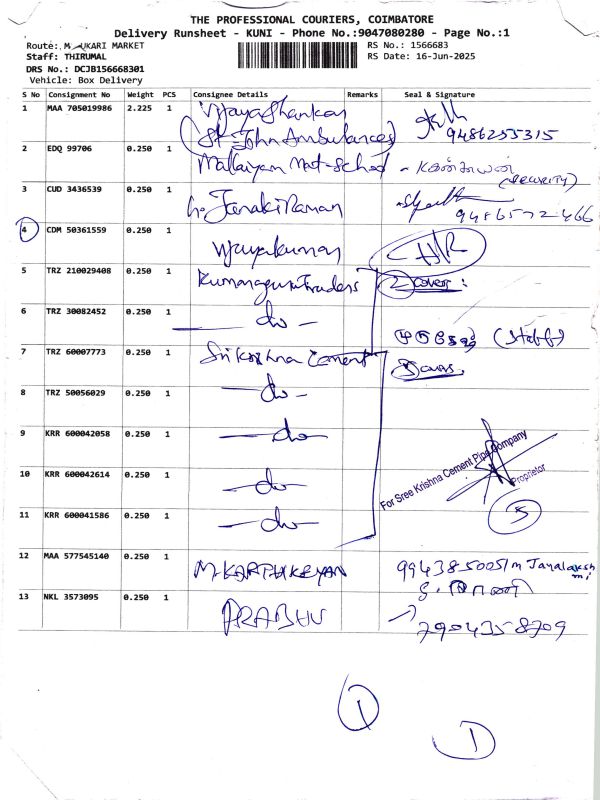 THE PROFESSIONAL COURIERS, COIMBATORE
Delivery Runsheet - KUNI - Phone No.:9047080280 - Page No.:1
Route: UKARI MARKET
RS No.: 1566683
Staff: THIRUMAL
RS Date: 16-Jun-2025
DRS No.: DCJB156668301
Vehicle: Box Delivery
S No Consignment No Weight PCS Consignee Details Remarks Seal & Signature
1 MAA 705019986 2.225 1 Vijayashankar
(St-John Ambulances) 9486255315
2 EDQ 99706 0.250 1 Mat-School
(Security)
3 CUD 3436539 0.250 1 JanakiRaman
9486572466
4 CDM 50361559 0.250 1 Vijayakumar
5 TRZ 210029408 0.250 1 Kumaraguru Traders 2 cover:
6 TRZ 30082452 0.250 1 - do -
(Staff)
7 TRZ 60007773 0.250 1 Sri Krishna Cement 5 covers
8 TRZ 50056029 0.250 1 - do -
9 KRR 600042058 0.250 1 - do -
10 KRR 600042614 0.250 1 - do -
For Sree Krishna Cement Pipe Company
Proprietor
11 KRR 600041586 0.250 1 - do -
5
12 MAA 577545140 0.250 1 M.KARTHIKEYAN 9943850051
13 NKL 3573095 0.250 1 PRABHU
7904358709
1
1